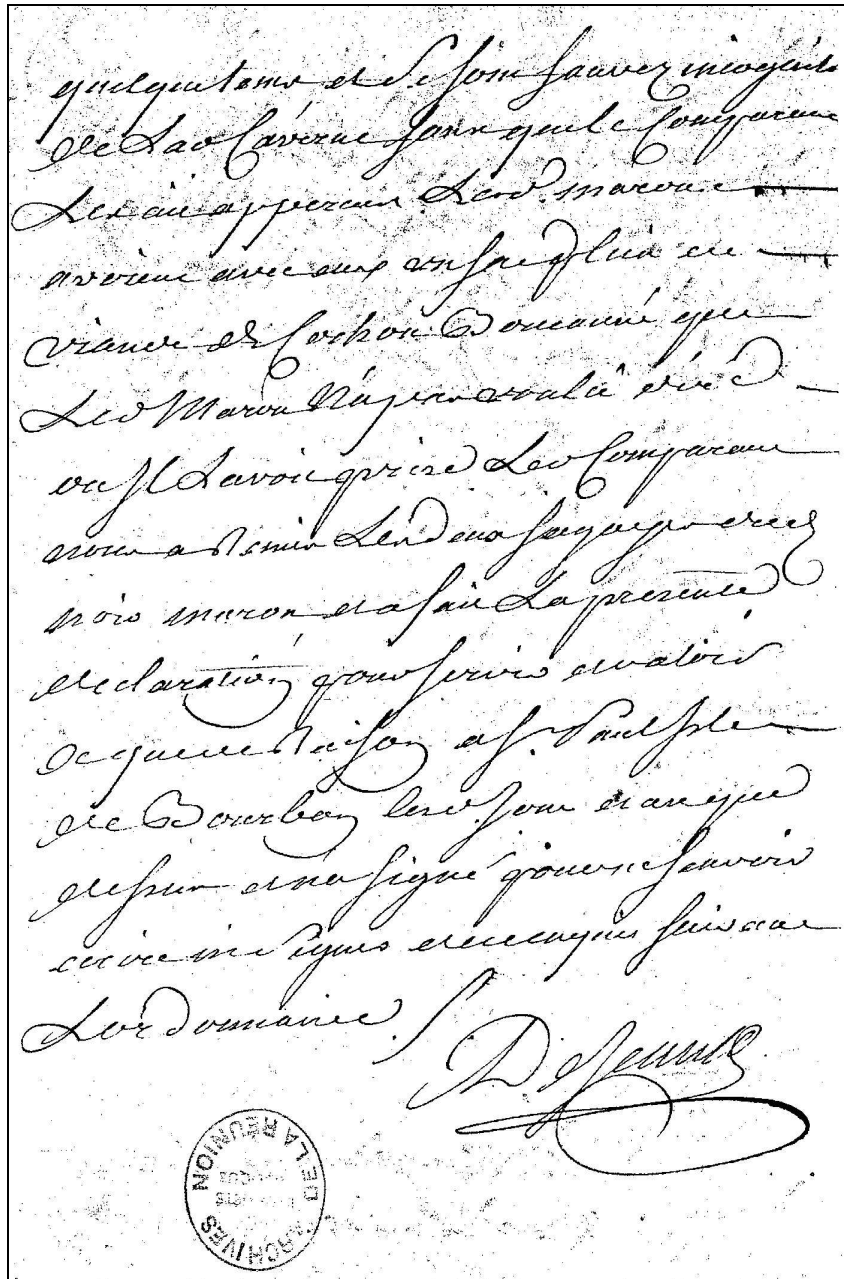 quelque tems et se sont sauvez
de Lad Caverne sans que le Comparant
Les ait apperceu Lesd. marons
avoient avec eux un sac plein de
viande de Cochon Boucanné que
Led Maron N'a pas voulu dire
ou Il Lavoit prise Led Comparant
nous a Remis Lesd deux sagayes desd
noirs maron et a fait La presente
declaration pour servir et valoir
ce que de Raison a St. Paul Isle
de Bourbon lesd. Jour et an que
dessus et n'a signé pour ne sçavoir
ecrire ni signer de ce enquis suivant
Lordonnance.
ARCHIVES DE LA RÉUNION